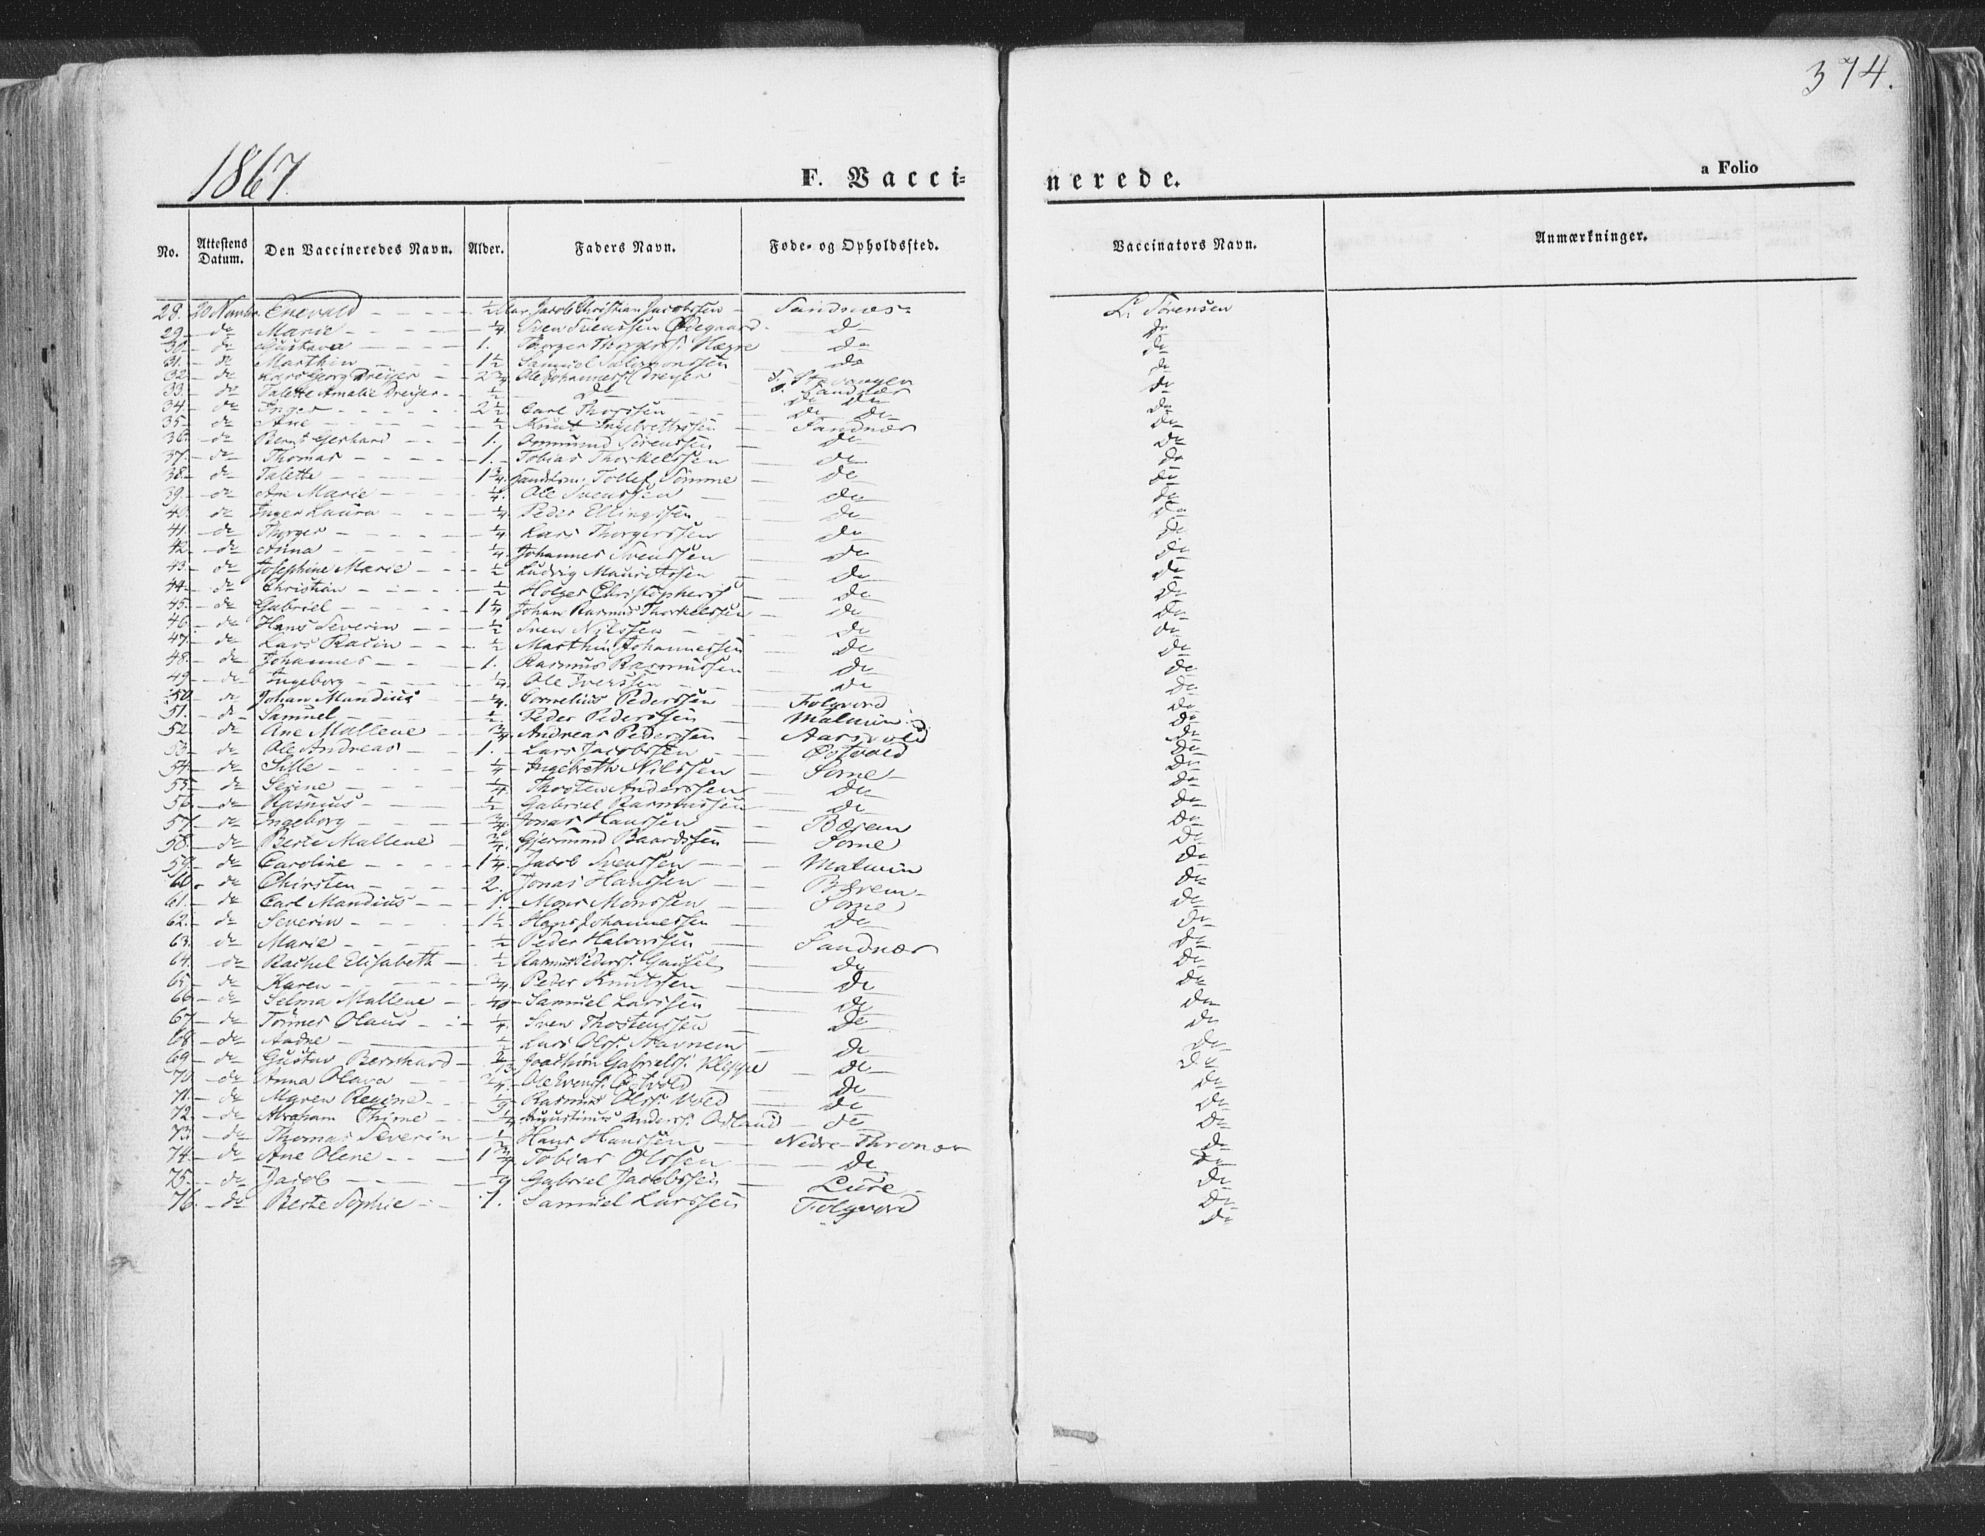 374.
1867.
F. Vacci-
nerede.
a Folio
No. Attestens Datum. Den Vaccineredes Navn. Alder. Faders Navn. Føde- og Opholdssted. Vaccinators Navn. Anmærkninger.
28. 20 Enevald ½ Jacob Christian Jacobsen Sandnes L. Sørensen
29 do Marie ¼ Sven Svenssen Ødegaard do do
30 do Gustava 1. Thorger Thorgerss. do do
31. do Marthin 1½ Samuel Salomonssen do do
32 do Georg Dreyer 2¾ Ole Johannes Dreyer Stavanger do
33. do Talette Amalie Dreyer ½ do Sandnæs
34. do Inger 2½ Carl Thorssen do do do
35. do Ane ½ Knut Ingebretssen Sandnær do
36 do Bernt Gerhard 1. Ommund Sørenssen do do
37. do Thomas 1. Tobias Thorkelssen do do
38. do Talette 1¾ Tollef Somme do do
39. do Ane Marie ¼ Ole Svenssen do do
40. do Inger Laura ¼ Peder Ellingssen do do
41. do Thorger ¼ Lars Thorgerssen do do
42. do Anna ¼ Johannes Svenssen do do
43. do Josephine Marie ½ Ludvig Mauritssen do do
44. do Christian ½ Holger Christophers do do
45. do Gabriel 1¼ Johan Rasmus Thorkelssen do do
46. do Hans Severin ½ Sven Nilssen do do
47. do Lars Rasin ½ Marthin Johannessen do do
48. do Johannes 1. Rasmus Rasmussen do do
49. do Ingeborg ¼ Ole Iverssen do do
50 do Johan Mandius ¼ Cornelius Pederssen Folgvord do
51. do Samuel ½ Peder Pederssen Malmin do
52. do Ane Mallene ¾ Andreas Pederssen Aarsvold do
53. do Ole Andreas 1. Lars Jacobssen Østvold do
54. do Sille ¼ Ingebreth Nilssen Some do
55. do Serine ¼ Thorsten Anderssen do do
56. do Rasmus ½ Gabriel Rasmussen do do
57. do Ingeborg ¾ Jonas Hanssen Bærem do
58. do Berte Mallene ¾ Gjermund Baardssen Some do
59. do Caroline 1¼ Jacob Svenssen Malmin do
60. do Chirsten 2. Jonas Hanssen Bærem do
61. do Carl Mandius 1. Mons Monssen Some do
62. do Severin 1½ Hans Johannessen do do
63. do Marie ½ Peder Halvorssen Sandnær do
64. do Rachel Elisabeth ½ Rasmus Pederss. Gausel do do
65 do Karen ¾ Peder Knutssen do do
66 do Selma Mallene Samuel Larssen do do
67 do Tonnes Olaus ¼ Sven Thorstenssen do do
68. do Aadne ½ Lars Olss. Stavnem do do
69. do Gustav Bernhard Joachim Gabrielss. Kleppe do do
70 do Anna Olava ¾ Ole Svenss. Østvold do do
71. do Maren Regine Rasmus Olss. Vold do do
72. do Abraham Thime ¼ Augustinus Anderss. Odland do do
73. do Thomas Severin ½ Hans Hanssen Nedre Thronær do
74. do Ane Olene 1¾ Tobias Olssen do do
75. do Jacob Gabriel Jacobssen Lure do
76 do Berte Sophie 1. Samuel Larssen Folgvord do